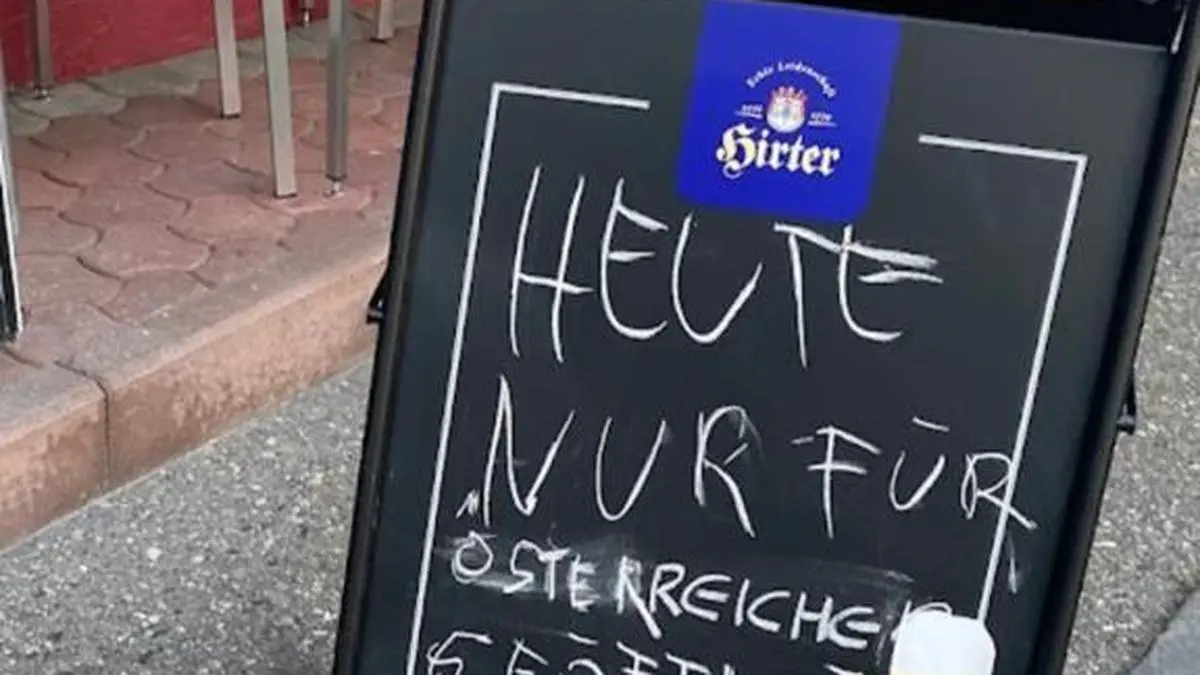 Echte Leidenschaft
Hirter
HEUTE
NUR FÜR
ÖSTERREICHER